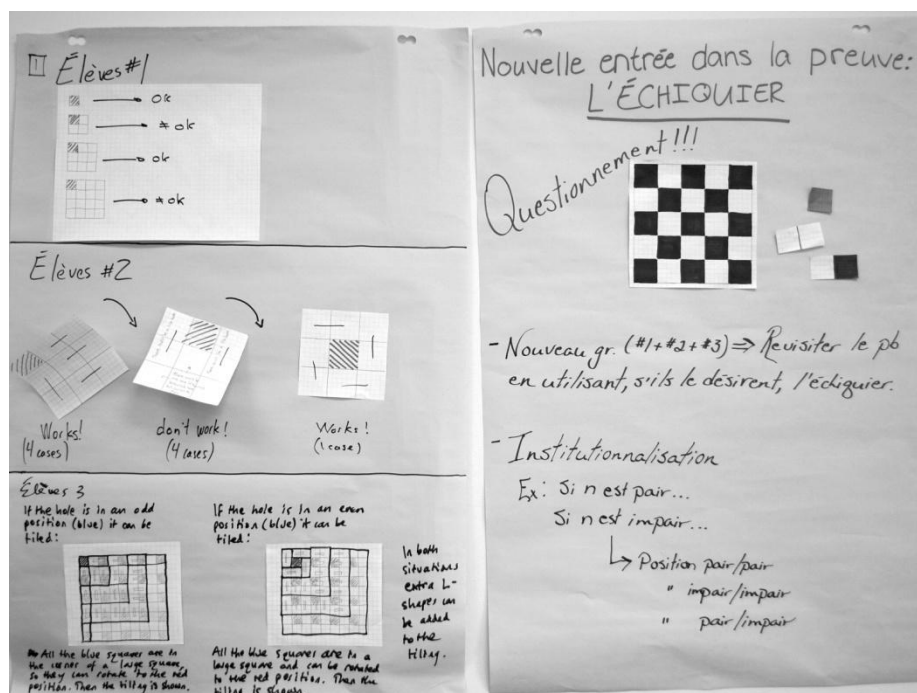 1 Élèves #1
Ok
≠ ok
ok
≠ ok
Élèves #2
Works!
(4 cases)
don't work!
(4 cases)
Works!
(1 case)
Élèves 3
If the hole is in an odd
position (blue) it can be
tiled:
All the blue squares are in
the corner of a large square,
so they can rotate to the red
position. Then the tiling is shown.
If the hole is in an even
position (blue) it can be
tiled:
All the blue squares are in a
large square and can be rotated
to the red position. Then the
tiling is shown
In both
situations
extra L-
shapes can
be added
to the
tiling.
Nouvelle entrée dans la preuve:
L'ÉCHIQUIER
Questionnement!!!
- Nouveau gr. (#1+#2+#3) ⇒ Revisiter le pb
en utilisant, s'ils le désirent, l'échiquier.
- Institutionnalisation
Ex: Si n est pair...
Si n est impair...
↳ Position pair/pair
" impair/impair
" pair/impair